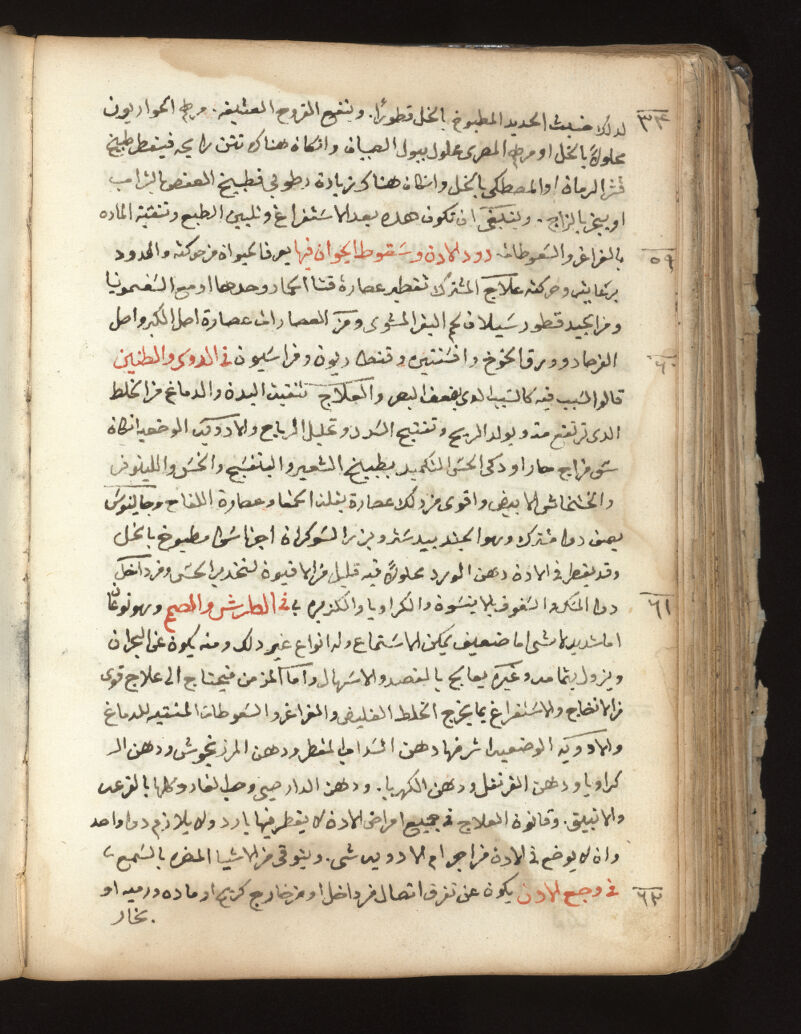 لدلك خبث الحديد المطبوخ بالخل قطورًا. وينفع القروح العتيقه. مرهم الحواريون ٣٣٤
محلولًا بالخل او مرهم المصرى محلول ببول الصبيان وانكان هناك نتن رايحه فيقطر طبيخ
قشر الرمان او المصطكى بالخل وانكان هناك زيادة رطوبه فطبيخ العفص بالشراب
او يبخر بالزاج. وينبغى ان تكون هده بعد الاستفراغ وتليين الطبع وتنقية الماده
بالغراغر والسعوطات دود الادن وسقوط الحيوان فيها يعرف الحيوان من حركته والدود ٥٩
وحركته علاج المشترك تقطير عصارة قثا الحمار وحدها او مع السقمونيا
ومن الجيد قطور سيلان لحم البقر المشوى ومن العصارات عصارة اصل الكبر واصل
الفرصاد وورق الخوخ وافسنتين وقنطاريون وفراسيون فى الدوى والطنين ٦٠
قالوا السبب فيه كالسبب الدى يضعف البصر والعلاج تنقية البدن والدماغ من الخلط
الدى ترتفع منه ويولد الريح وتفتيح السدد وتحليل الرياح والادوية الموضعيه انكان
سوى مزاج حار او دكى الحس التكميد بطبيخ الشعير والبنفسج والخس واللينوفر
والخشخاش الابيض واقوى من دلك عصارة بقلة الحمقا وعصارة اللفاح وجالينوس
يصف دوا مشترك وهو الجند بيدستر وبزر الشوكران اجزا سوا مطبوخ بالخل
وقد يقطر فى الادن دهن الورد محلولًا فيه قليل من الافيون لتخدير الحس ومن داخل
دوا المسك السفوف بلاينسون والكراويا والكزبره فى الطرش والصمم وهو نوعان ٦١
اما شديد لا شى اما ضعيف يمكن الاستماع وله انواع غير دلك ومنه يكون عن البحران
ويزول بتمامه وغيره يعالج بالفصد والاسهال واما المزمن فيحتاج الى علاج قوى
من الانضاج والاستفراغ بما يخرج الخلط الغليض والغراغر والسعوطات المنقيه للدماغ
والادويه الموضعيه اشرفها دهن السداب المقطر ودهن المرزنجوش ودهن الـ
كراويا ودهن القرنفل ودهن الكهربا. ودهن الدارصينى وحب الغار وكلها بالقرعه
والانبيق. وقانون العلاج فى جميع امراض الادن لا يقطر فيها بارد ولا يلازم دوا واحد
وان لا يوضع فى الادن من اجرام الادويه شى. ويتوقى من الاشيا المضره بالسمع
فى وجع الادن يكون عن تفرق اتصال من داخل او من خارج كريح او ماده ورميه او ٦٢
بخار